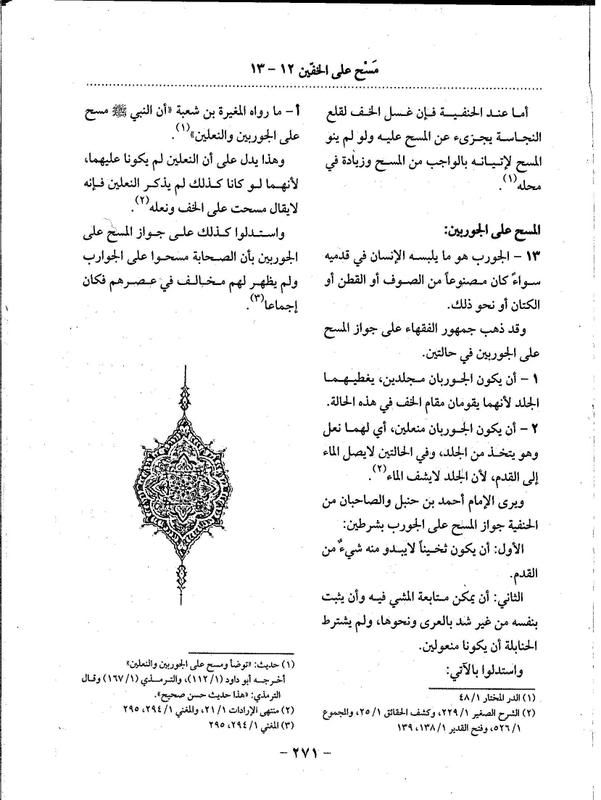 مَسْح على الخفّين ١٢ - ١٣
أما عند الحنفية فإن غسل الخف لقلع
النجاسة يجزىء عن المسح عليه ولو لم ينو
المسح لإتيـانـه بالواجب من المسح وزيادة في
محله(١).
المسح على الجوربين:
١٣ - الجورب هو ما يلبسه الإنسان في قدميه
سواءً كان مصنوعاً من الصوف أو القطن أو
الكتان أو نحو ذلك.
وقد ذهب جمهور الفقهاء على جواز المسح
على الجوربين في حالتين.
١ - أن يكون الجوربان مجلدين، يغطيهما
الجلد لأنهما يقومان مقام الخف في هذه الحالة.
٢ - أن يكون الجوربان منعلين، أي لهما نعل
وهو يتخذ من الجلد، وفي الحالتين لايصل الماء
إلى القدم، لأن الجلد لايشف الماء(٢).
ويرى الإمام أحمد بن حنبل والصاحبان من
الحنفية جواز المسح على الجورب بشرطين:
الأول: أن يكون ثخيناً لايبدو منه شيءٌ من
القدم.
الثاني: أن يمكن متابعة المشي فيه وأن يثبت
بنفسه من غير شد بالعرى ونحوها، ولم يشترط
الحنابلة أن يكونا منعولين.
واستدلوا بالآتي:
(١) الدر المختار ١/ ٤٨
(٢) الشرح الصغير ١/ ٢٢٩، وكشف الحقائق ١/ ٢٥، والمجموع
١/ ٥٢٦، وفتح القدير ١/ ١٣٨، ١٣٩
أ - ما رواه المغيرة بن شعبة «أن النبي ﷺ مسح
على الجوربين والنعلين»(١).
وهذا يدل على أن النعلين لم يكونا عليهما،
لأنهما لو كانا كذلك لم يذكر النعلين فإنه
لايقال مسحت على الخف ونعله(٢).
واستدلوا كذلك على جواز المسح على
الجوربين بأن الصحابة مسحوا على الجوارب
ولم يظهر لهم مخالف في عصرهم فكان
إجماعا(٣).
(١) حديث: «توضأ ومسح على الجوربين والنعلين»
أخرجه أبو داود (١/ ١١٢)، والترمذي (١/ ١٦٧) وقال
الترمذي: «هذا حديث حسن صحيح».
(٢) منتهى الإرادات ١/ ٢١، والمغني ١/ ٢٩٤، ٢٩٥
(٣) المغني ١/ ٢٩٤، ٢٩٥
- ٢٧١ -